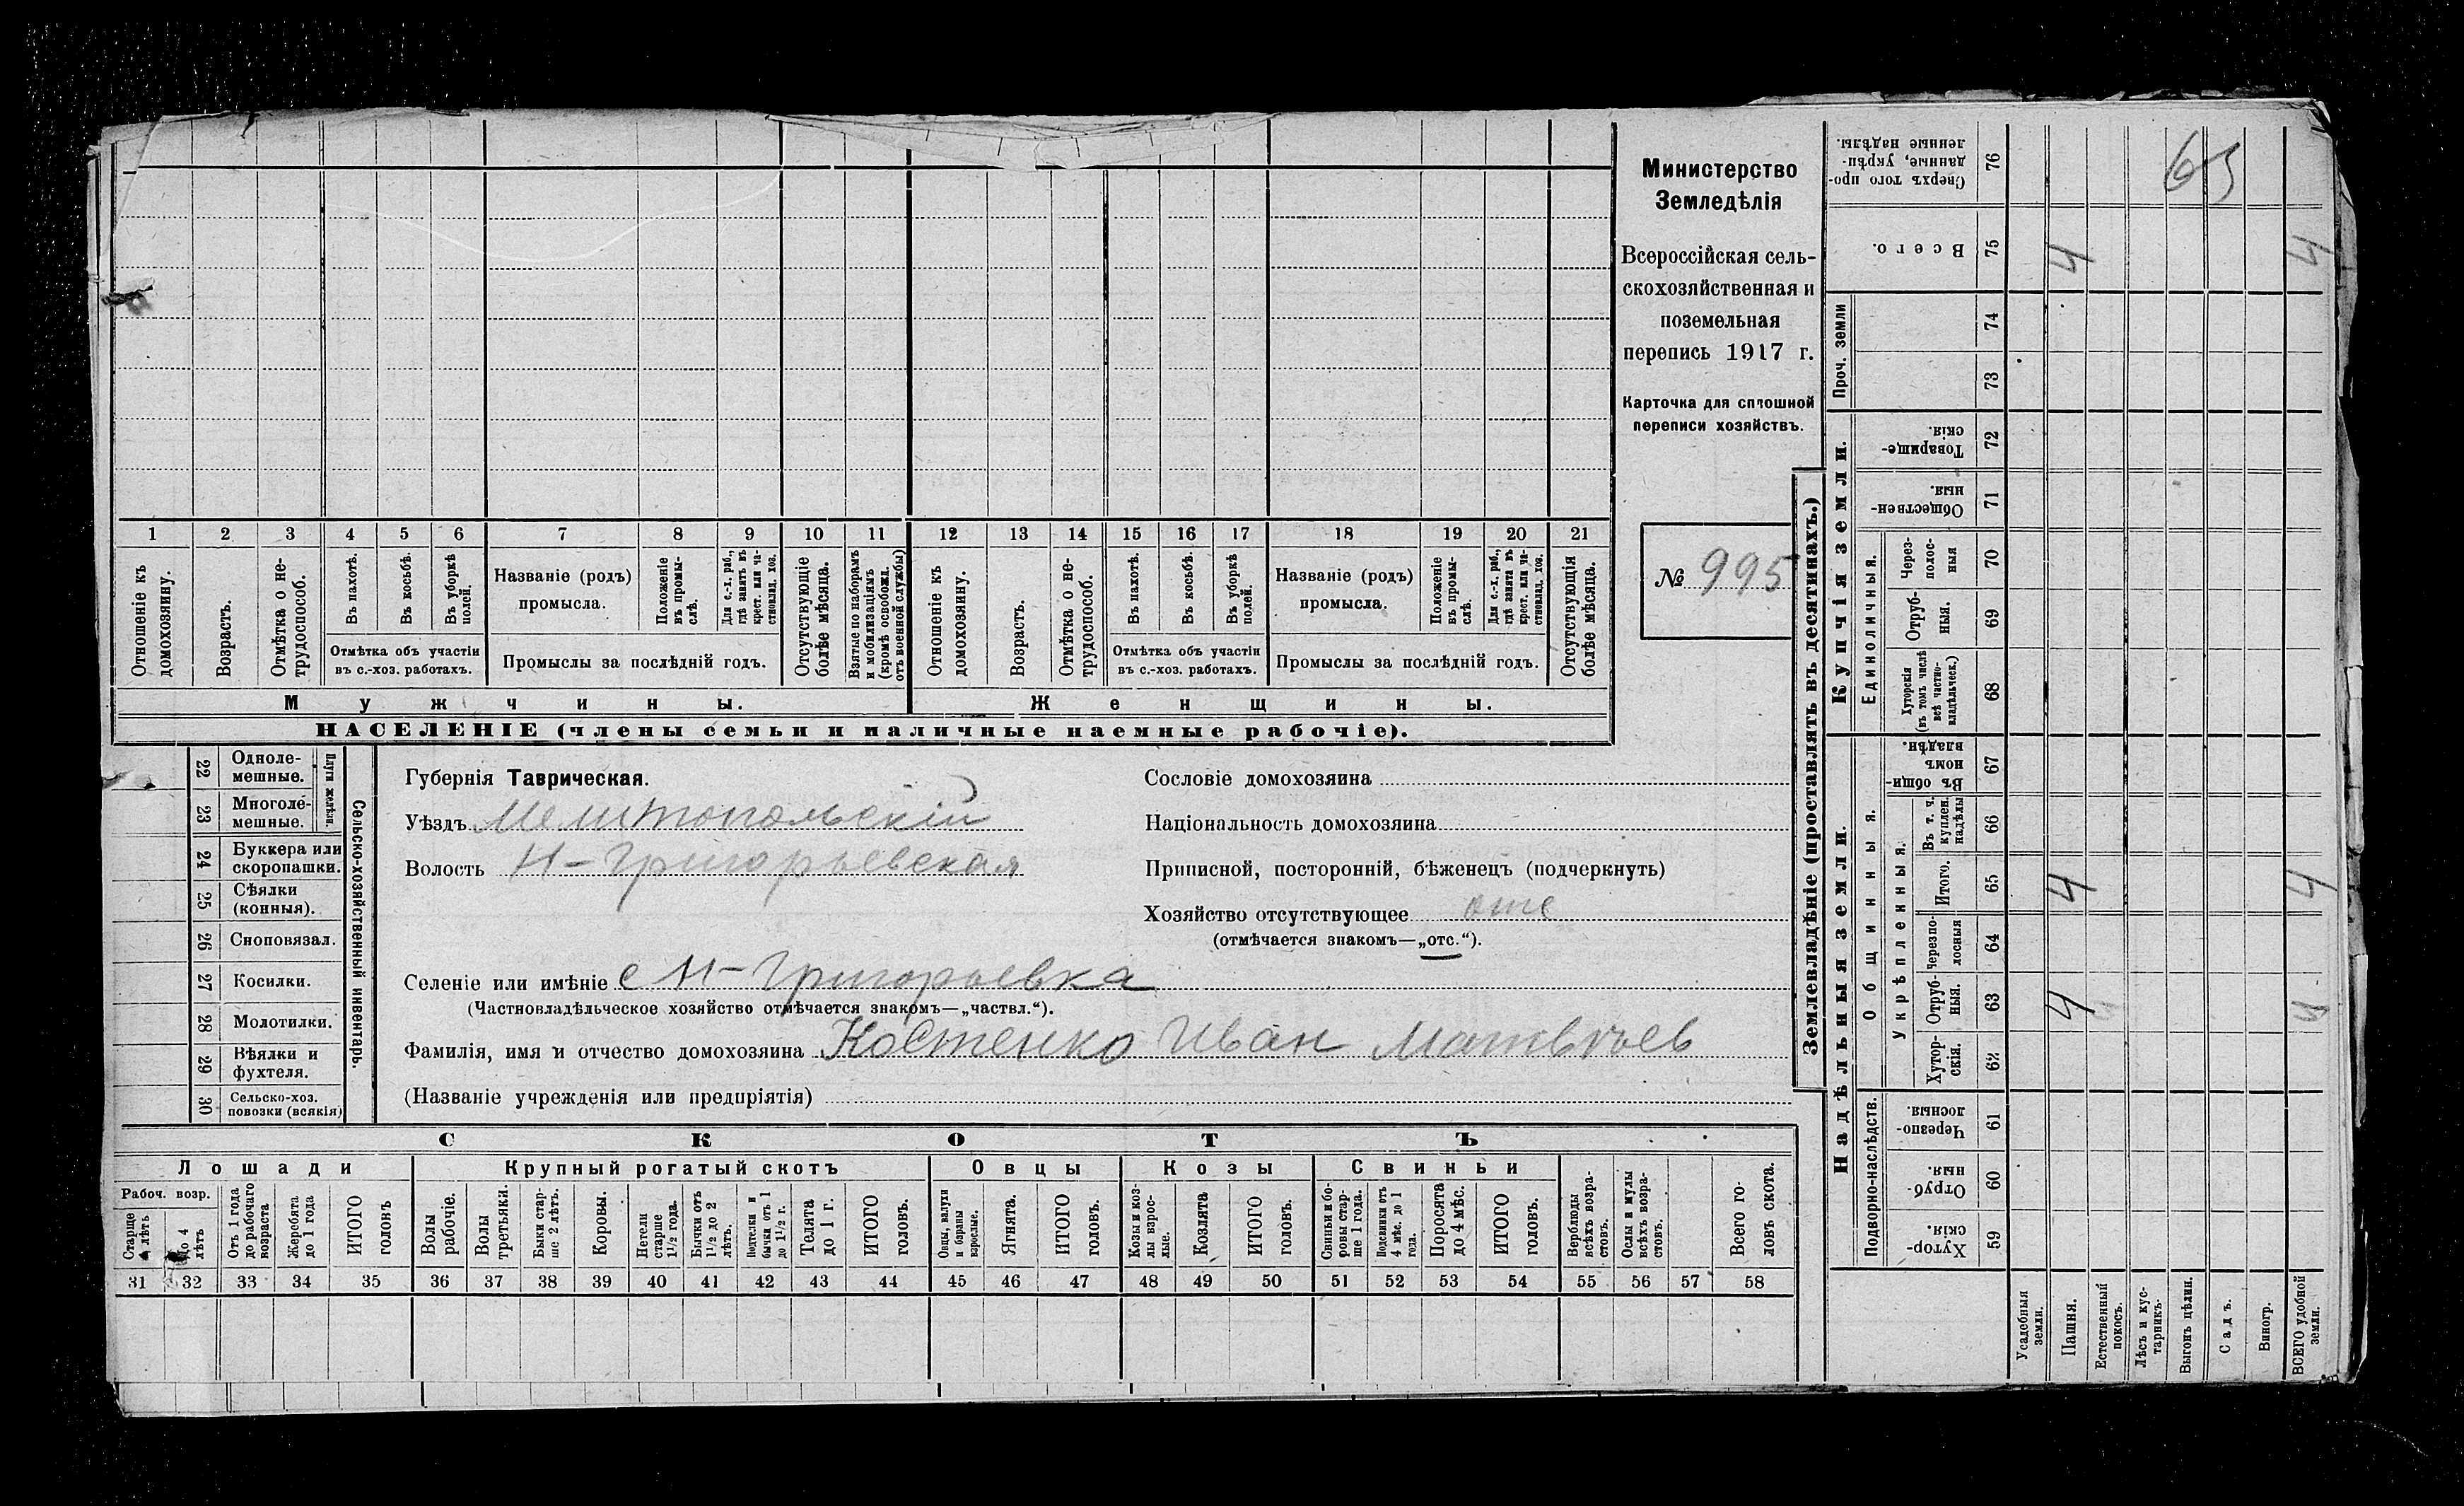 Министерство
Земледѣлія
Всероссійская сель-
скохозяйственная и
поземельная
перепись 1917 г.
Карточка для сплошной
переписи хозяйствъ.
№ 995
1 2 3 4 5 6 7 8 9 10 11 12 13 14 15 16 17 18 19 20 21
Отношеніе къ домохозяину.
Возрастъ.
Отмѣтка о не-трудоспособ.
Въ пахотѣ.
Въ косьбѣ.
Въ уборкѣ полей.
Отмѣтка объ участіи
въ с.-хоз. работахъ.
Названіе (родъ)
промысла.
Положеніе въ промы-слѣ.
Для с.-х. раб., гдѣ занятъ въ крест. или ча-стновлад. хоз.
Промыслы за послѣдній годъ.
Отсутствующіе болѣе мѣсяца.
Взятые по наборамъ и мобилизаціямъ (кромѣ освобожд. отъ военной службы)
Отношеніе къ домохозяину.
Возрастъ.
Отмѣтка о не-трудоспособ.
Въ пахотѣ.
Въ косьбѣ.
Въ уборкѣ полей.
Отмѣтка объ участіи
въ с.-хоз. работахъ.
Названіе (родъ)
промысла.
Положеніе въ промы-слѣ.
Для с.-х. раб., гдѣ занята въ крест. или ча-стновлад. хоз.
Промыслы за послѣдній годъ.
Отсутствующія болѣе мѣсяца.
Мужчины.
Женщины.
НАСЕЛЕНІЕ (члены семьи и наличные наемные рабочіе).
22 Одноле-мешные.
23 Многоле-мешные.
Плуги желѣзн.
24 Буккера или скоропашки.
25 Сѣялки (конныя).
26 Сноповязал.
27 Косилки.
28 Молотилки.
29 Вѣялки и фухтеля.
30 Сельско-хоз. повозки (всякія)
Сельско-хозяйственный инвентарь.
Губернія Таврическая.
Уѣздъ Мелитопольскій
Волость Н-Григорьевская
Селеніе или имѣніе с Н-Григорьевка
(Частновладѣльческое хозяйство отмѣчается знакомъ—„частвл.“).
Фамилія, имя и отчество домохозяина Костенко Иван Матвѣев
(Названіе учрежденія или предпріятія)
Сословіе домохозяина
Національность домохозяина
Приписной, посторонній, бѣженецъ (подчеркнуть)
Хозяйство отсутствующее отс
(отмѣчается знакомъ—„отс.“).
СКОТЪ
Лошади
Крупный рогатый скотъ
Овцы
Козы
Свиньи
Рабоч. возр.
Старше 4 лѣтъ
До 4 лѣтъ
Отъ 1 года до рабочаго возраста
Жеребята до 1 года
ИТОГО головъ
Волы рабочіе.
Волы третьяки.
Быки стар-ше 2 лѣтъ.
Коровы.
Нетели старше 1½ года.
Бычки отъ 1½ до 2 лѣтъ.
Подтелки и бычки отъ 1 до 1½ г.
Телята до 1 г.
ИТОГО головъ.
Овцы, валухи и бараны взрослые.
Ягнята.
ИТОГО головъ.
Козы и коз-лы взрос-лые.
Козлята
ИТОГО головъ.
Свиньи и бо-ровы стар-ше 1 года.
Подсвинки отъ 4 мѣс. до 1 года.
Поросята до 4 мѣс.
ИТОГО головъ.
Верблюды всѣхъ возра-стовъ.
Ослы и мулы всѣхъ возра-стовъ.
Всего го-ловъ скота.
31 32 33 34 35 36 37 38 39 40 41 42 43 44 45 46 47 48 49 50 51 52 53 54 55 56 57 58
Землевладѣніе (проставлять въ десятинахъ.)
Сверхъ того про-данные, укрѣп-ленные надѣлы. 76 65
Всего. 75 4 4
Проч. земли
74
73
Купчія земли.
Товарище-скія. 72
Обществен-ныя. 71
Единоличныя.
Через-полос-ныя 70
Отруб-ныя. 69
Хуторскія (въ томъ числѣ всѣ частно-владѣльческ.) 68
Надѣльныя земли.
Общинныя.
Въ общи-номъ владѣн. 67
Укрѣпленныя.
Въ т. ч. куплен. надѣлы 66
Итого. 65 4 4
Черезпо-лосныя 64
Отруб-ныя. 63 4 4
Хутор-скія. 62
Подворно-наслѣдств.
Черезпо-лосныя. 61
Отруб-ныя. 60
Хутор-скія. 59
Усадебныя земли.
Пашня.
Естественный покосъ.
Лѣсъ и кус-тарникъ.
Выгонъ цѣлин.
Садъ.
Виногр.
ВСЕГО удобной земли.